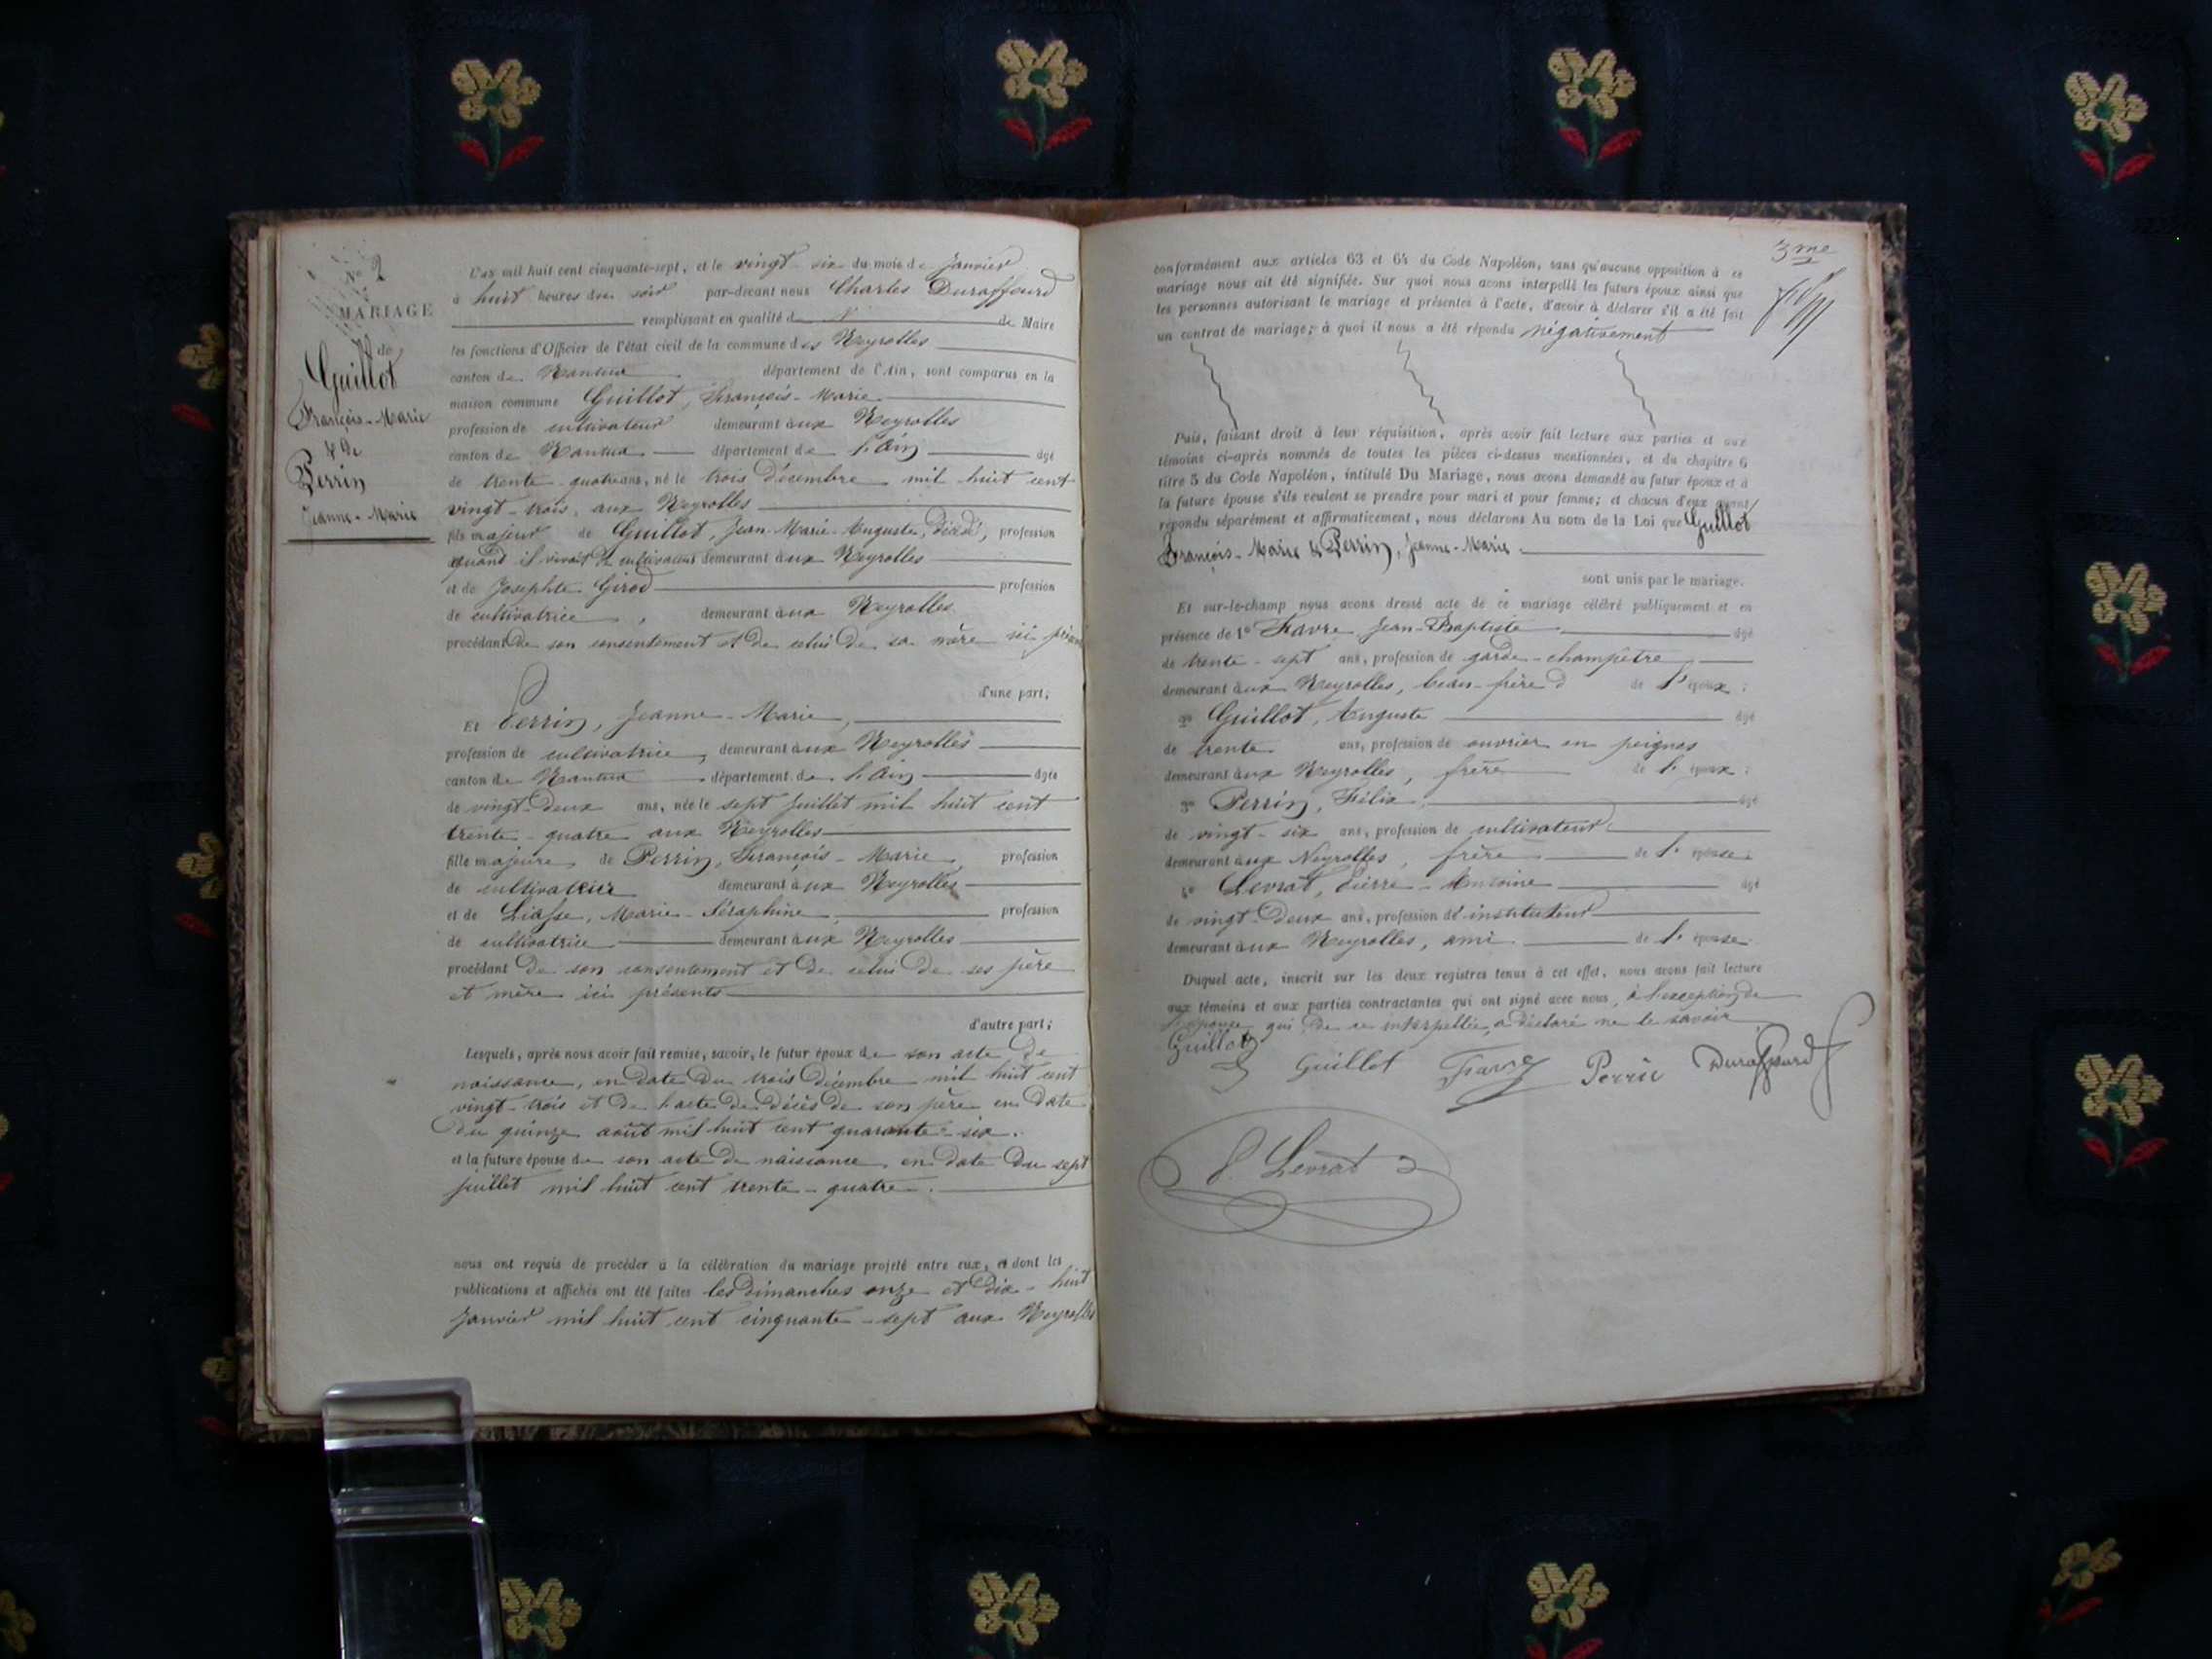 N° 2
MARIAGE
de
Guillot
François-Marie
& de
Perrin
Jeanne-Marie
L'an mil huit cent cinquante-sept, et le vingt-six du mois de Janvier
à huit heures du soir par-devant nous Charles Duraffourd
remplissant en qualité d de Maire
les fonctions d'Officier de l'état civil de la commune des Neyrolles
canton de Nantua département de l'Ain, sont comparus en la
maison commune Guillot, François-Marie
profession de cultivateur demeurant aux Neyrolles
canton de Nantua département de l'Ain âgé
de trente-quatre ans, né le trois décembre mil huit cent
vingt-trois, aux Neyrolles
fils majeur de Guillot, Jean-Marie-Auguste, décédé, profession
quand il vivait de cultivateur demeurant aux Neyrolles
et de Josephte Girod profession
de cultivatrice, demeurant aux Neyrolles
procédant de son consentement et de celui de sa mère ici présente
d'une part;
Et Perrin, Jeanne-Marie,
profession de cultivatrice, demeurant aux Neyrolles
canton de Nantua département de l'Ain âgée
de vingt-deux ans, née le sept Juillet mil huit cent
trente-quatre aux Neyrolles
fille majeure de Perrin, François-Marie, profession
de cultivateur demeurant aux Neyrolles
et de Liasse, Marie-Séraphine, profession
de cultivatrice demeurant aux Neyrolles
procédant de son consentement et de celui de ses père
et mère ici présents
d'autre part;
Lesquels, après nous avoir fait remise, savoir, le futur époux de son acte de
naissance, en date du trois décembre mil huit cent
vingt-trois et de l'acte de décès de son père en date
du quinze août mil huit cent quarante-six.
et la future épouse de son acte de naissance en date du sept
Juillet mil huit cent trente-quatre.
nous ont requis de procéder à la célébration du mariage projeté entre eux, et dont les
publications et affiches ont été faites les dimanches onze et dix-huit
Janvier mil huit cent cinquante-sept aux Neyrolles
3me
conformément aux articles 63 et 64 du Code Napoléon, sans qu'aucune opposition à ce
mariage nous ait été signifiée. Sur quoi nous avons interpellé les futurs époux ainsi que
les personnes autorisant le mariage et présentes à l'acte, d'avoir à déclarer s'il a été fait
un contrat de mariage; à quoi il nous a été répondu négativement
Puis, faisant droit à leur réquisition, après avoir fait lecture aux parties et aux
témoins ci-après nommés de toutes les pièces ci-dessus mentionnées, et du chapitre 6
titre 5 du Code Napoléon, intitulé Du Mariage, nous avons demandé au futur époux et à
la future épouse s'ils veulent se prendre pour mari et pour femme; et chacun d'eux ayant
répondu séparément et affirmativement, nous déclarons Au nom de la Loi que Guillot
François-Marie & Perrin, Jeanne-Marie
sont unis par le mariage.
Et sur-le-champ nous avons dressé acte de ce mariage célébré publiquement et en
présence de 1° Favre Jean-Baptiste âgé
de trente-sept ans, profession de garde-champêtre,
demeurant aux Neyrolles, beau-frère de l'époux;
2° Guillot, Auguste âgé
de trente ans, profession de ouvrier en peignes
demeurant aux Neyrolles, frère de l'époux;
3° Perrin, Félix, âgé
de vingt-six ans, profession de cultivateur
demeurant aux Neyrolles, frère de l'épouse
4° Levrat, Pierre-Antoine âgé
de vingt-deux ans, profession d'instituteur
demeurant aux Neyrolles, ami de l'épouse
Duquel acte, inscrit sur les deux registres tenus à cet effet, nous avons fait lecture
aux témoins et aux parties contractantes qui ont signé avec nous, à l'exception de
l'épouse qui de ce interpellée, a déclaré ne le savoir
Guillot Guillot Favre Perrin Duraffourd
P. Levrat